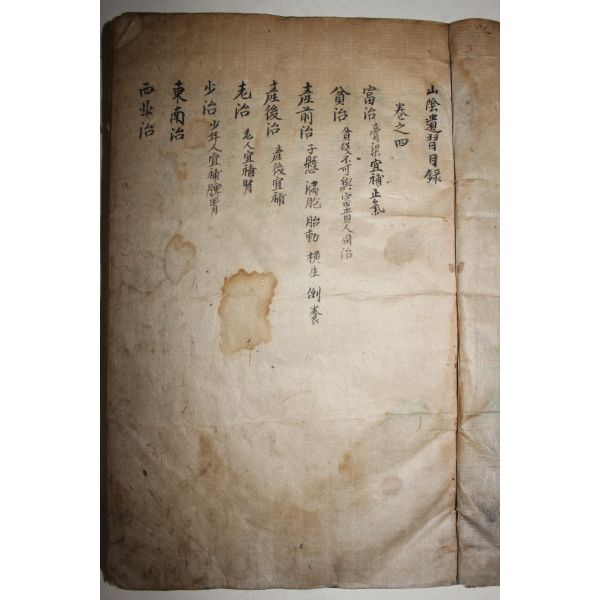 山陰遺習目録
卷之四
富治 膏粱宜補正氣
貧治 貧賤不可與富貴人同治
產前治 子懸 漏胞 胎動 橫生 倒養
產後治 產後宜補
老治 老人宜補腎
少治 少年人宜補脾胃
東南治
西北治